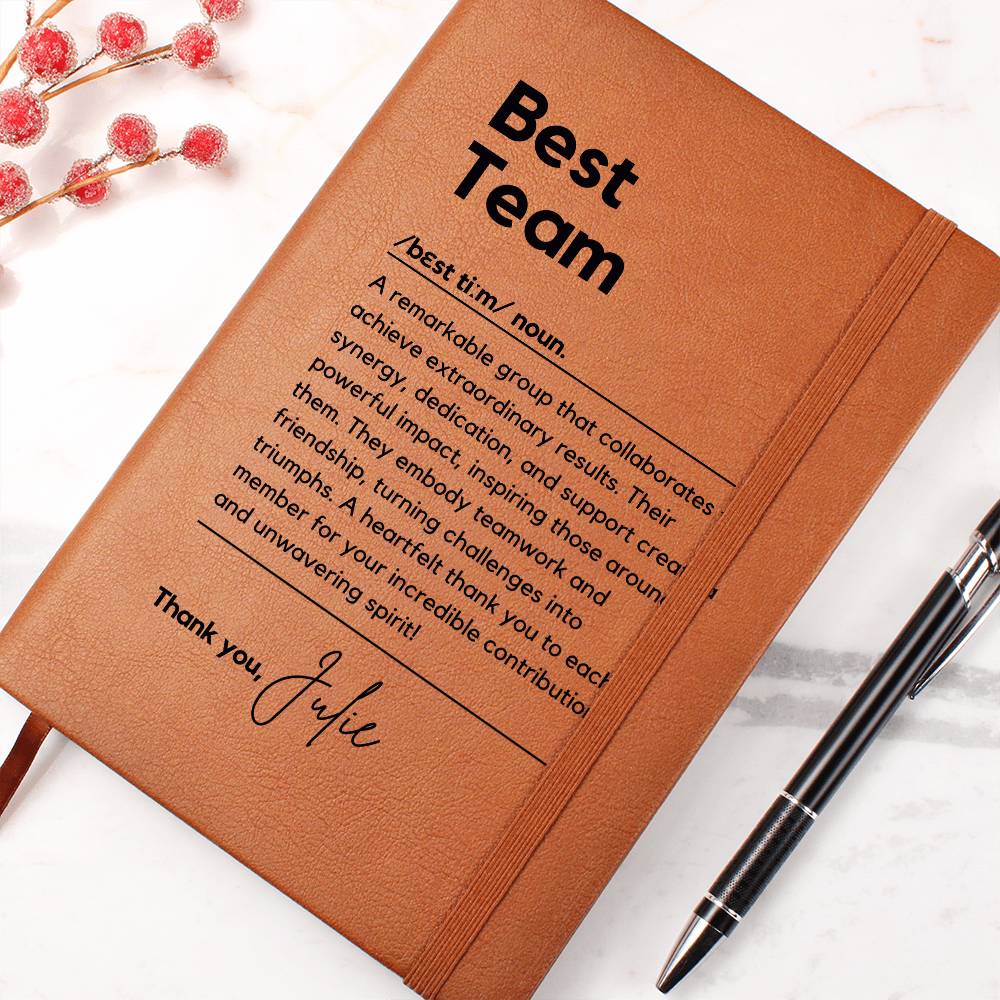 Best
Team
/bɛst tiːm/ noun.
A remarkable group that collaborates
achieve extraordinary results. Their
synergy, dedication, and support crea
powerful impact, inspiring those aroun
them. They embody teamwork and
friendship, turning challenges into
triumphs. A heartfelt thank you to each
member for your incredible contributio
and unwavering spirit!
Thank you, Julie